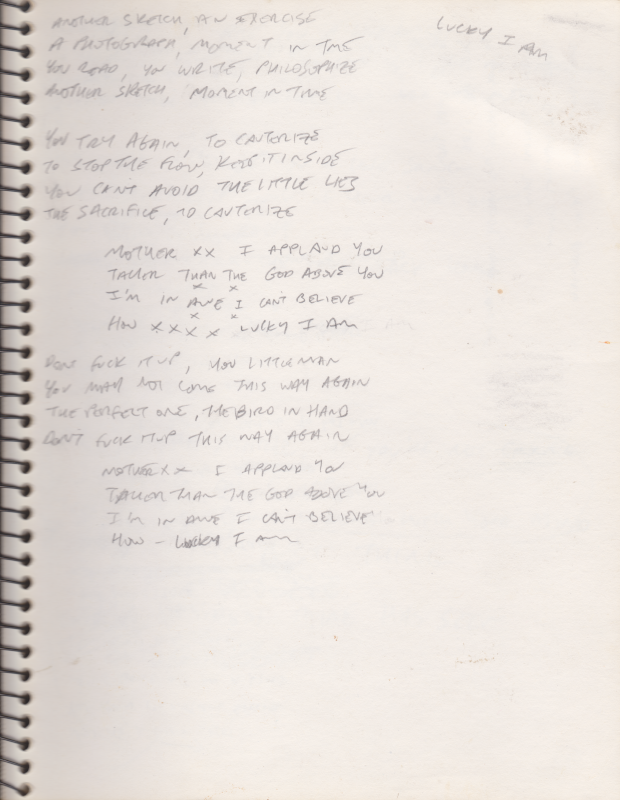 LUCKY I AM
ANOTHER SKETCH, AN EXERCISE
A PHOTOGRAPH, MOMENT IN TIME
YOU READ, YOU WRITE, PHILOSOPHIZE
ANOTHER SKETCH, MOMENT IN TIME
YOU TRY AGAIN, TO CAUTERIZE
TO STOP THE FLOW, KEEP IT INSIDE
YOU CANT AVOID THE LITTLE LIES
THE SACRIFICE, TO CAUTERIZE
MOTHER XX I APPLAUD YOU
TALLER THAN THE GOD ABOVE YOU
I'M IN AWE I CAN'T BELIEVE
HOW XXXX LUCKY I AM
DONT FUCK IT UP, YOU LITTLE MAN
YOU MAY NOT COME THIS WAY AGAIN
THE PERFECT ONE, THE BIRD IN HAND
DON'T FUCK IT UP THIS WAY AGAIN
MOTHER XX I APPLAUD YOU
TALLER THAN THE GOD ABOVE YOU
I'M IN AWE I CAN'T BELIEVE
HOW - LUCKY I AM